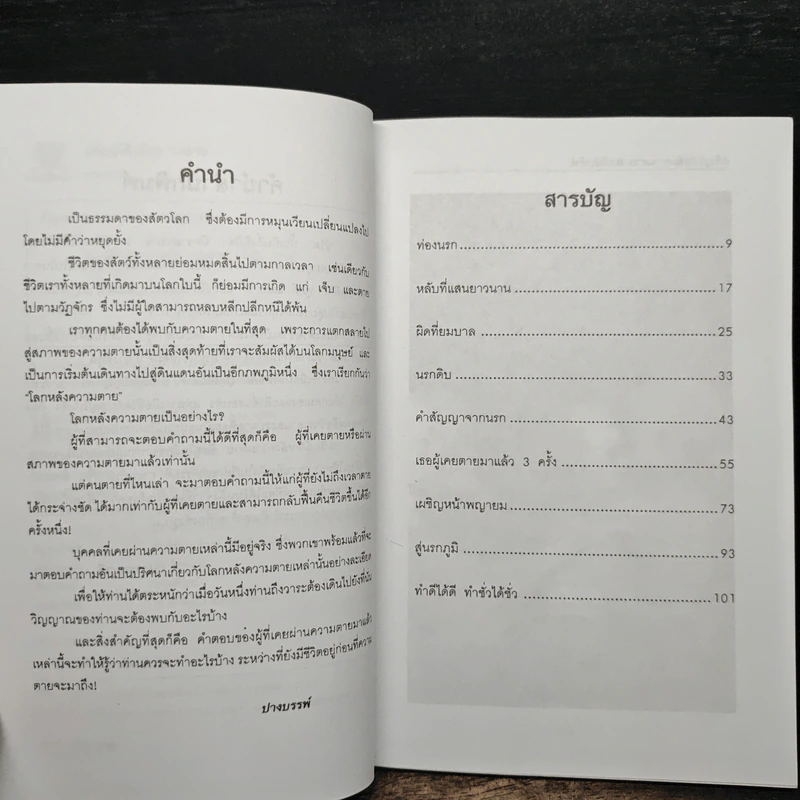 คำนำ
เป็นธรรมดาของสัตวโลก ซึ่งต้องมีการหมุนเวียนเปลี่ยนแปลงไป
โดยไม่มีคำว่าหยุดยั้ง
ชีวิตของสัตว์ทั้งหลายย่อมหมดสิ้นไปตามกาลเวลา เช่นเดียวกับ
ชีวิตเราทั้งหลายที่เกิดมาบนโลกใบนี้ ก็ย่อมมีการเกิด แก่ เจ็บ และตาย
ไปตามวัฏจักร ซึ่งไม่มีผู้ใดสามารถหลบหลีกปลีกหนีได้พ้น
เราทุกคนต้องได้พบกับความตายในที่สุด เพราะการแตกสลายไป
สู่สภาพของความตายนั้นเป็นสิ่งสุดท้ายที่เราจะสัมผัสได้บนโลกมนุษย์ และ
เป็นการเริ่มต้นเดินทางไปสู่ดินแดนอันเป็นอีกภพภูมิหนึ่ง ซึ่งเราเรียกกันว่า
"โลกหลังความตาย"
โลกหลังความตายเป็นอย่างไร?
ผู้ที่สามารถจะตอบคำถามนี้ได้ดีที่สุดก็คือ ผู้ที่เคยตายหรือผ่าน
สภาพของความตายมาแล้วเท่านั้น
แต่คนตายที่ไหนเล่า จะมาตอบคำถามนี้ให้แก่ผู้ที่ยังไม่ถึงเวลาตาย
ได้กระจ่างชัด ได้มากเท่ากับผู้ที่เคยตายและสามารถกลับฟื้นคืนชีวิตขึ้นได้อีก
ครั้งหนึ่ง!
บุคคลที่เคยผ่านความตายเหล่านี้มีอยู่จริง ซึ่งพวกเขาพร้อมแล้วที่จะ
มาตอบคำถามอันเป็นปริศนาเกี่ยวกับโลกหลังความตายเหล่านั้นอย่างละเอียด
เพื่อให้ท่านได้ตระหนักว่าเมื่อวันหนึ่งท่านถึงวาระต้องเดินไปยังที่นั่น
วิญญาณของท่านจะต้องพบกับอะไรบ้าง
และสิ่งสำคัญที่สุดก็คือ คำตอบของผู้ที่เคยผ่านความตายมาแล้ว
เหล่านี้จะทำให้รู้ว่าท่านควรจะทำอะไรบ้าง ระหว่างที่ยังมีชีวิตอยู่ก่อนที่ความ
ตายจะมาถึง!
ปางบรรพ์
สารบัญ
ท่องนรก 9
หลับที่แสนยาวนาน 17
ผิดที่ยมบาล 25
นรกดิบ 33
คำสัญญาจากนรก 43
เธอผู้เคยตายมาแล้ว 3 ครั้ง 55
เผชิญหน้าพญายม 73
สู่นรกภูมิ 93
ทำดีได้ดี ทำชั่วได้ชั่ว 101